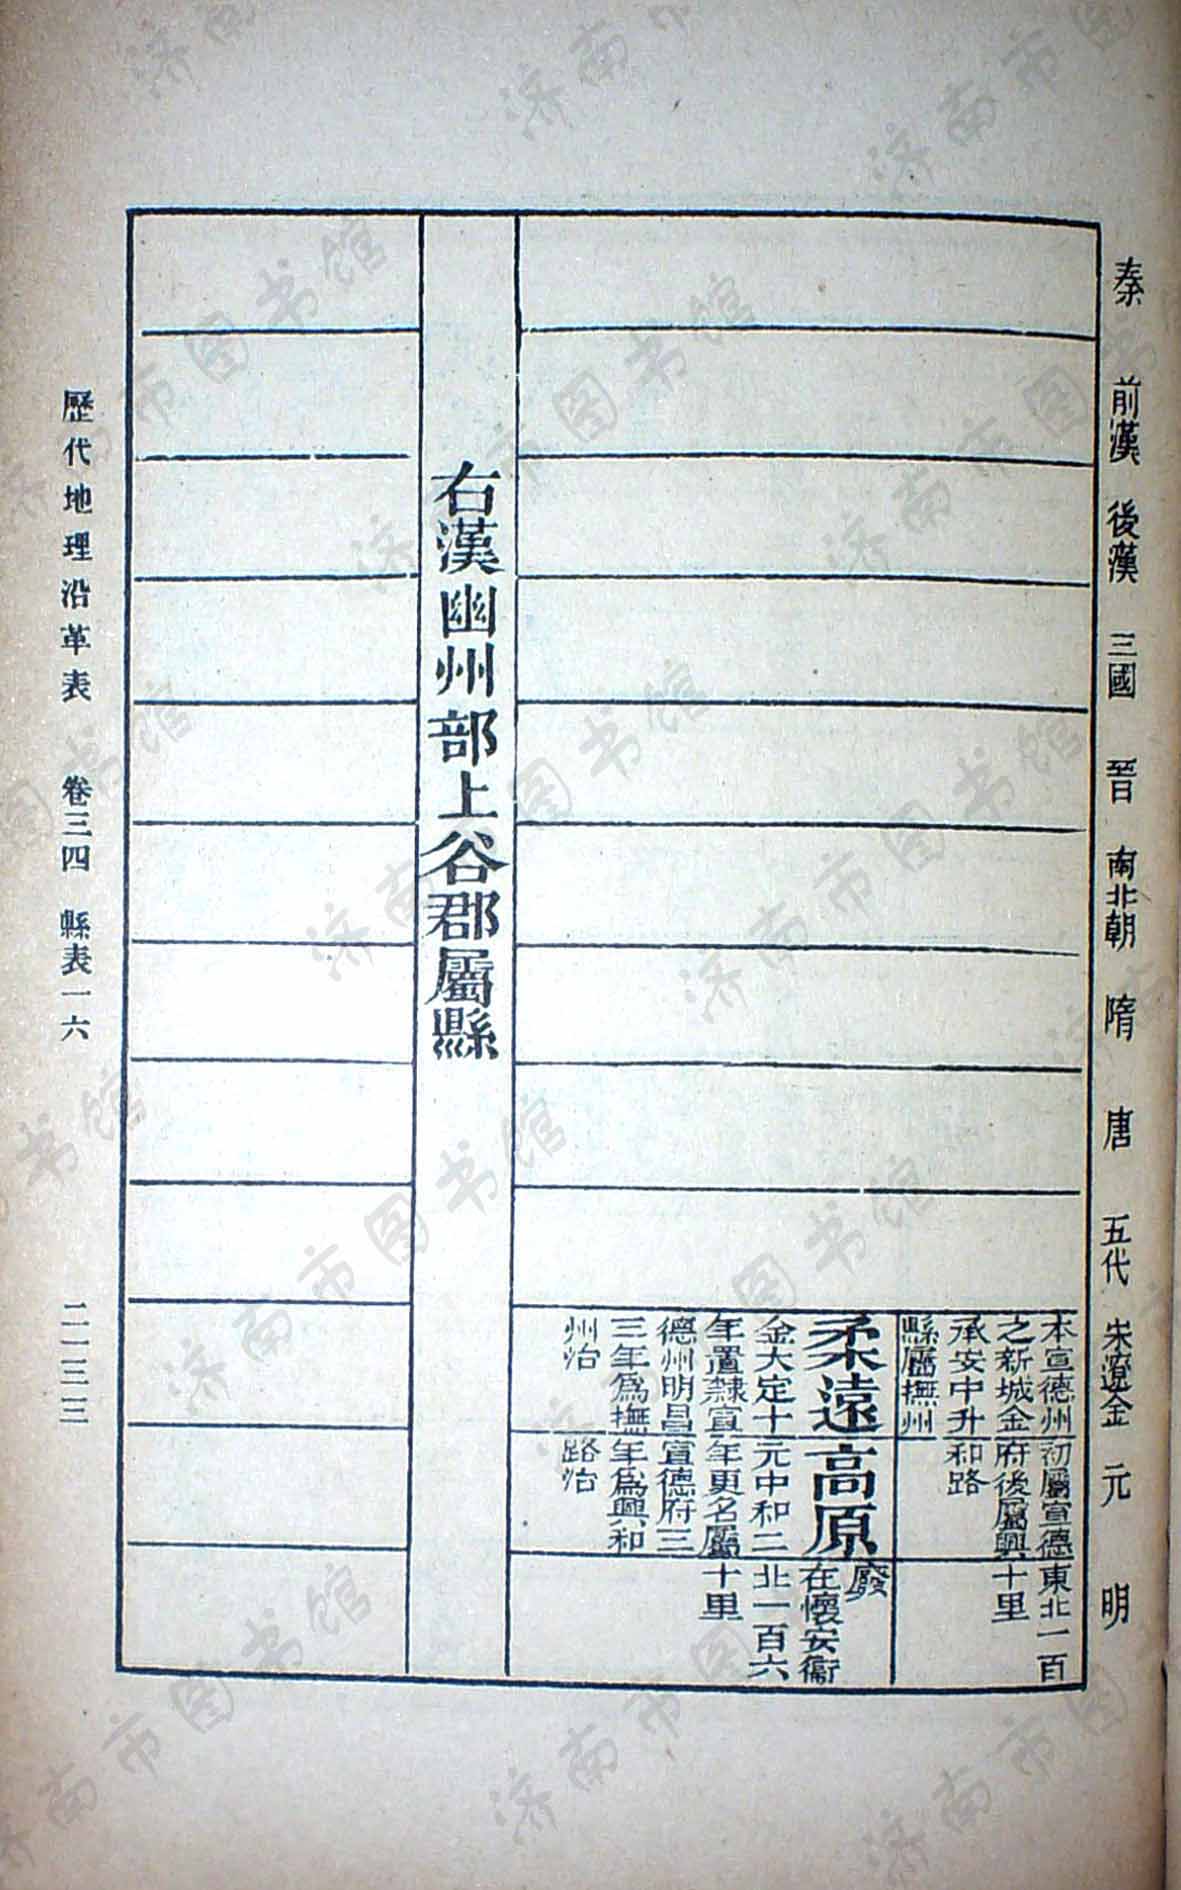 秦
前漢
後漢
三國
晉
南北朝
隋
唐
五代
宋遼金
元
明
本宣德州
之新城金
承安中升
縣屬撫州
初屬宣德
府後屬興
和路
東北一百
十里
柔遠
金大定十
年置隸宣
德州明昌
三年爲撫
州治
高原
元中和二
年更名屬
宣德府三
年爲興和
路治
廢
在懷安衞
北一百六
十里
右漢幽州部上谷郡屬縣
歷代地理沿革表 卷三四 縣表一六 二一三三
济南市图书馆